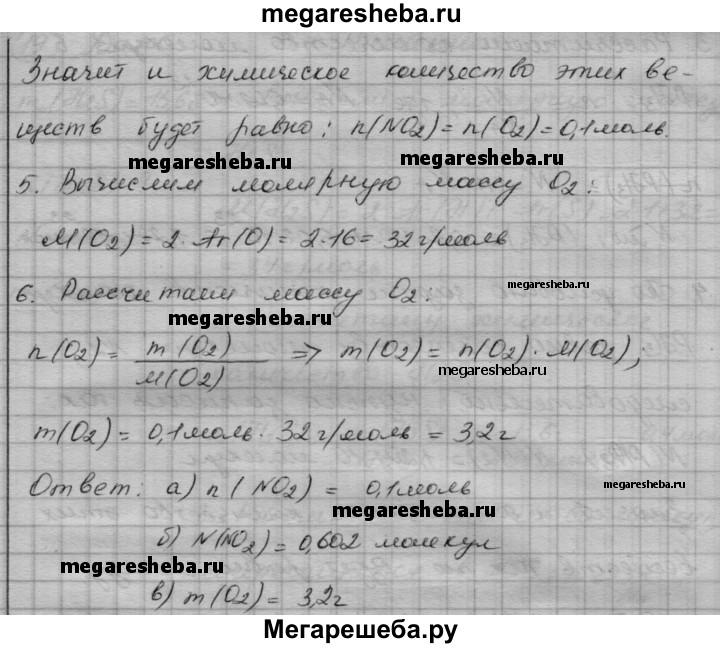 megaresheba.ru
Значит и химическое количество этих ве-
ществ будет равно: n(NO₂) = n(O₂) = 0,1 моль.
megaresheba.ru megaresheba.ru
5. Вычислим молярную массу O₂:
M(O₂) = 2·Ar(O) = 2·16 = 32 г/моль
megaresheba.ru
6. Рассчитаем массу O₂:
megaresheba.ru
n(O₂) = m(O₂) / M(O₂) => m(O₂) = n(O₂)·M(O₂);
megaresheba.ru
m(O₂) = 0,1 моль · 32 г/моль = 3,2 г
Ответ: а) n(NO₂) = 0,1 моль
megaresheba.ru
megaresheba.ru
б) N(NO₂) = 0,602 молекул
megaresheba.ru
в) m(O₂) = 3,2 г
megaresheba.ru
Мегарешеба.ру